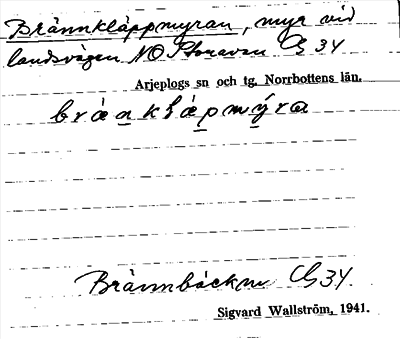 Brännkläppmyran, myr vid
landsvägen NO Storavan Cg 34
Arjeplogs sn och tg. Norrbottens län.
Brännbäcken Cg 34.
Sigvard Wallström, 1941.